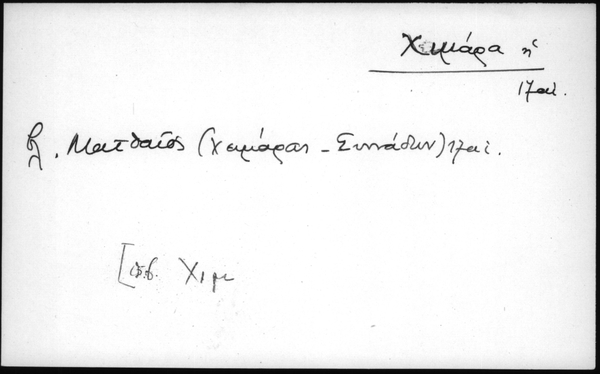 Χειμάρα ἡ
17αι.
βλ. Ματθαῖος (Χειμάρας - Συννάδων) 17αι.
[ Χιμ